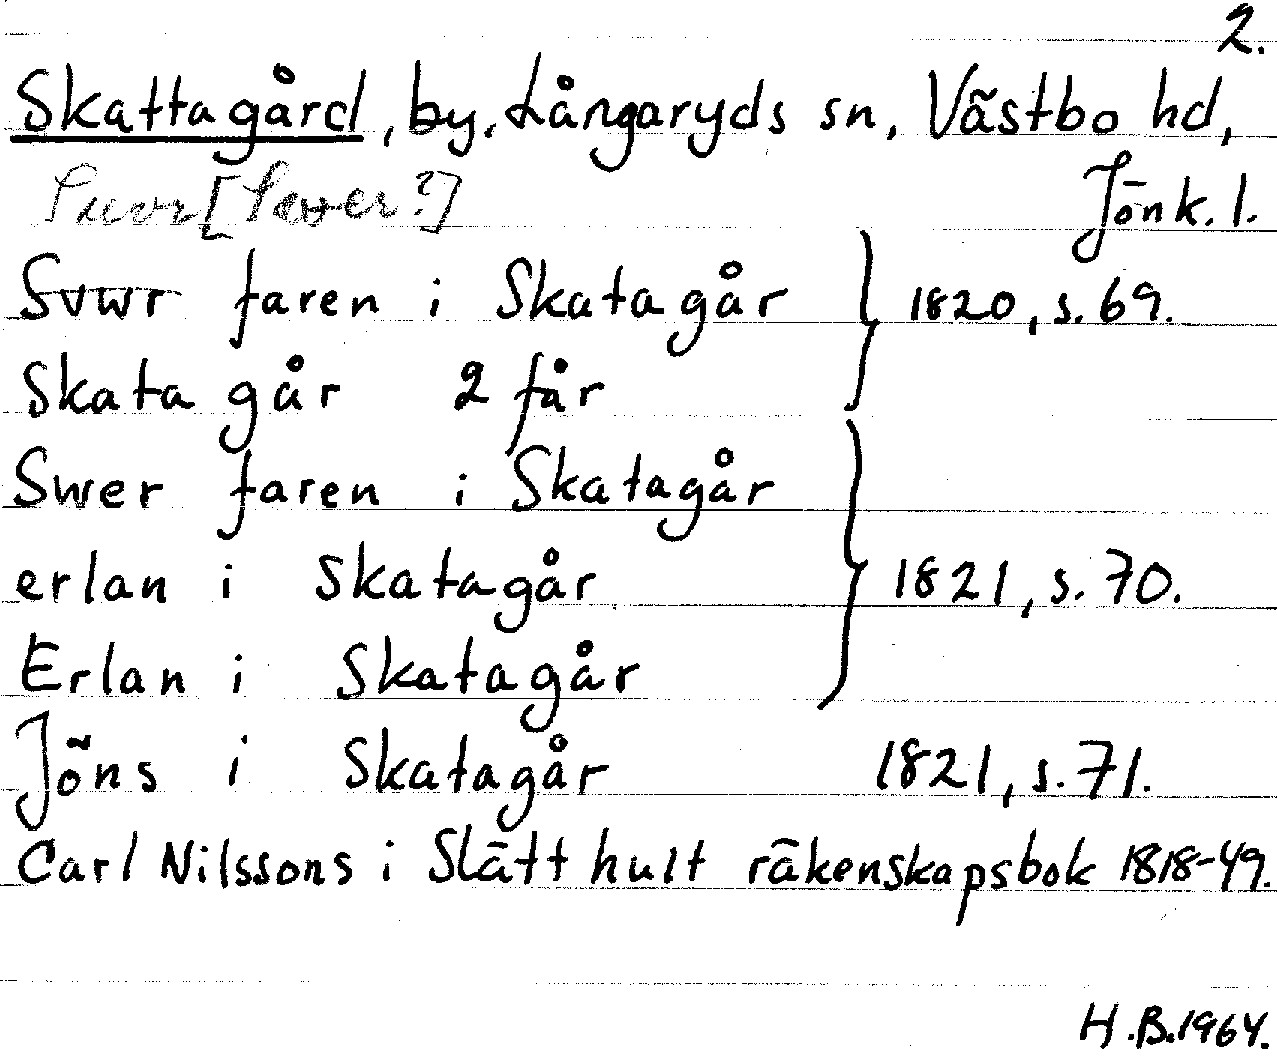 2.
Skattagård, by, Långaryds sn, Västbo hd,
Jönk. l.
Svwr faren i Skatagår } 1820, s. 69.
Skata går 2 får
Swer faren i Skatagår
erlan i Skatagår } 1821, s. 70.
Erlan i Skatagår
Jöns i Skatagår 1821, s. 71.
Carl Nilssons i Slätthult räkenskapsbok 1818-49.
H.B. 1964.